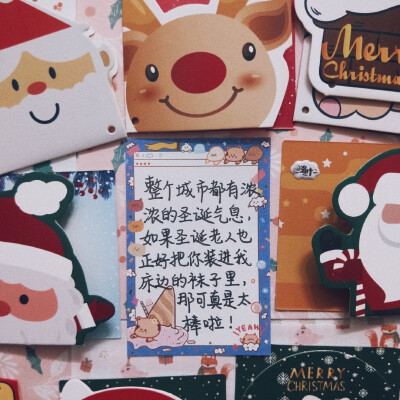 Merry
Christmas
整个城市都有浓
浓的圣诞气息,
如果圣诞老人也
正好把你装进我
床边的袜子里,
那可真是太
棒啦!
YEAH
MERRY
CHRISTMAS